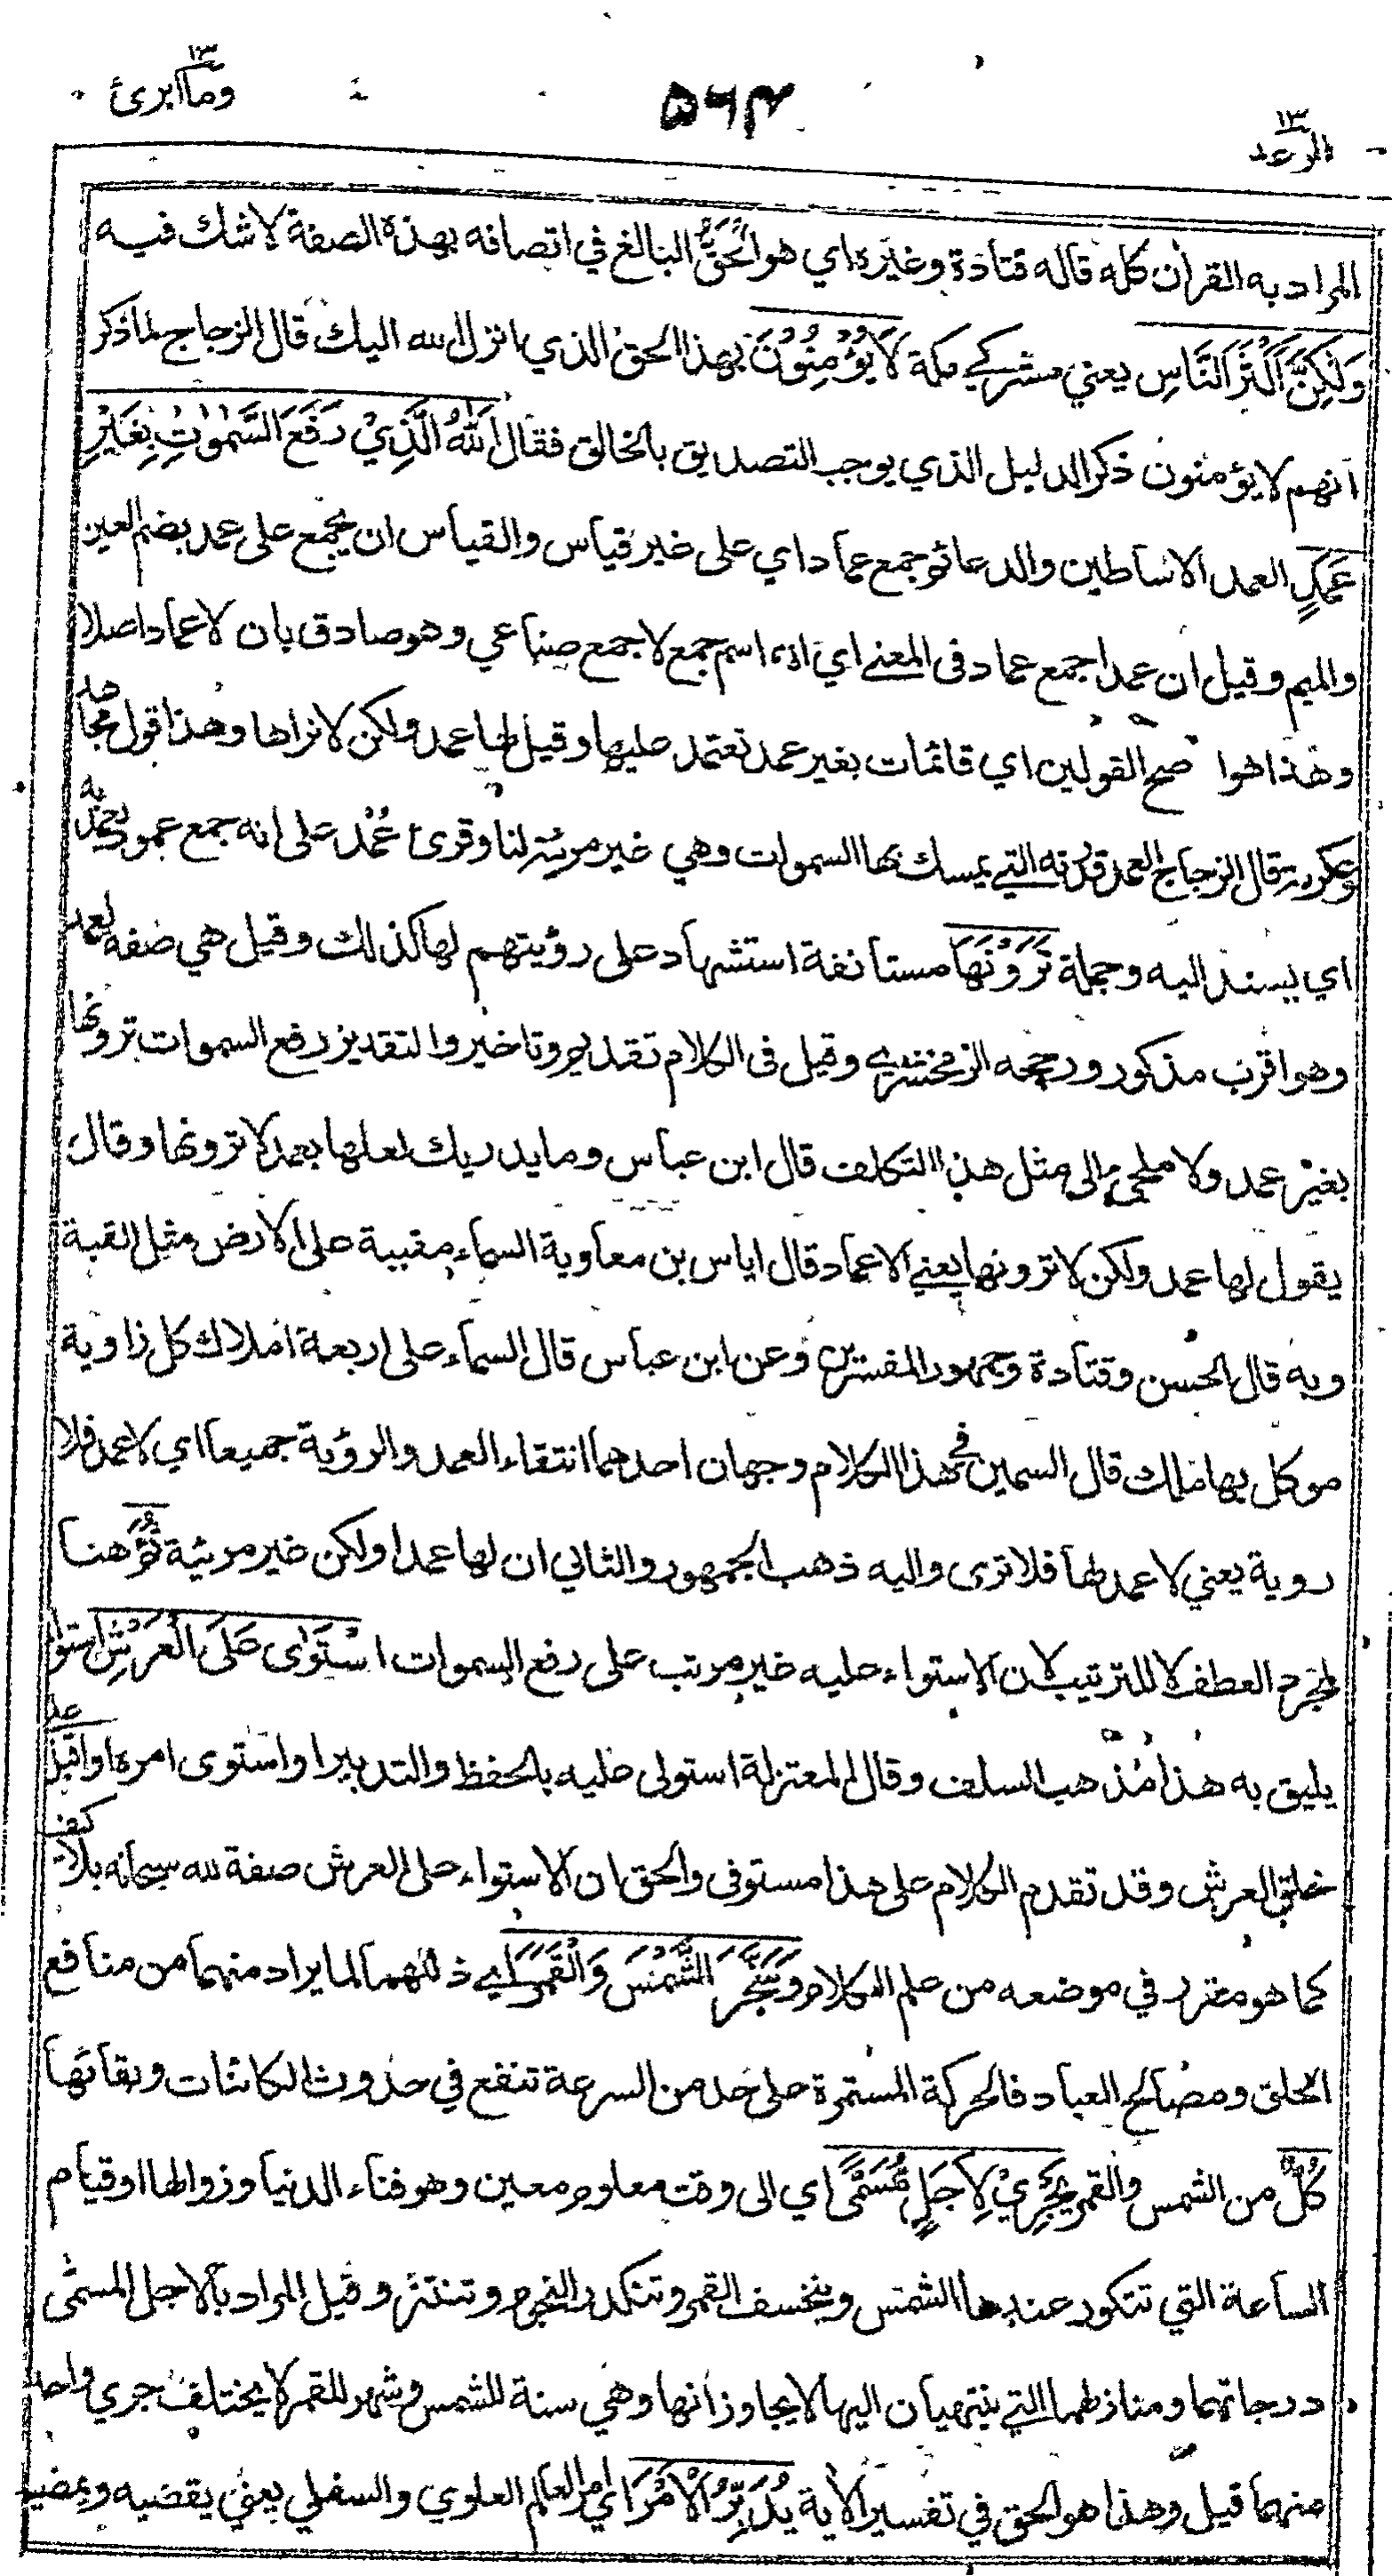 ١٣
وما ابرئ
٥٦٣
١٣
الرعد
المراد به القرأن كله قاله قتادة وغيره اي هو الْحَقُّ البالغ في اتصافه بهذه الصفة لا شك فيه
وَلٰكِنَّ اَكْثَرَ النَّاسِ يعني مشركي مكة لَا يُؤْمِنُوْنَ بهذا الحق الذي انزل الله اليك قال الزجاج لما ذكر
انهم لا يؤمنون ذكر الدليل الذي يوجب التصديق بالخالق فقال اَللّٰهُ الَّذِيْ رَفَعَ السَّمٰوٰتِ بِغَيْرِ
عَمَدٍ العمد الاساطين والدعائم جمع عماد اي على غير قياس والقياس ان يجمع على عمد بضم العين
والميم وقيل ان عمدا جمع عماد فى المعنى اي انه اسم جمع لا جمع صناعي وهو صادق بان لا عماد اصلا
وهذا هو ا صح القولين اي قائمات بغير عمد تعتمد عليها وقيل لها عمد ولكن لا نراها وهذا قول مجاهد
وعكرمة قال الزجاج العمد قدرته التي يمسك بها السموات وهي غير مرئية لنا وقرئ عُمُد على انه جمع عمود يعمد به
اي يسند اليه وجملة تَرَوْنَهَا مستانفة استشهاد على رؤيتهم لها كذلك وقيل هي صفة لعمد
وهو اقرب مذكور ورجحه الزمخشري وقيل فى الكلام تقديم وتاخير والتقدير رفع السموات ترونها
بغير عمد ولا ملجئ الى مثل هذا التكلف قال ابن عباس وما يدريك لعلها بعمد لا ترونها وقال
يقول لها عمد ولكن لا ترونها يعني الاعماد قال اياس بن معاوية السماء مقببة على الارض مثل القبة
وبه قال الحسن وقتادة وجمهور المفسرين وعن ابن عباس قال السماء على اربعة املاك كل زاوية
موكل بها ملك قال السمين في هذا الكلام وجهان احدهما انتقاء العمد والرؤية جميعا اي لا عمد فلا
روية يعني لا عمد لها فلا ترى واليه ذهب الجمهور والثاني ان لها عمدا ولكن غير مرئية ثُمَّ هنا
لمجرد العطف لا للترتيب لان الاستواء عليه غير مرتب على رفع السموات اسْتَوٰى عَلَى الْعَرْشِ استواء
يليق به هذا مذهب السلف وقال المعتزلة استولى عليه بالحفظ والتدبير او استوى امره او اقبل على
خلق العرش وقد تقدم الكلام على هذا مستوفى والحق ان الاستواء على العرش صفة لله سبحانه بلا كيف
كما هو مقرر في موضعه من علم الكلام وَسَخَّرَ الشَّمْسَ وَالْقَمَرَ اي ذللهما لما يراد منهما من منافع
الخلق ومصالح العباد فالحركة المستمرة على حد من السرعة تنفع في حدوث الكائنات وبقائها
كُلٌّ من الشمس والقمر يَّجْرِيْ لِاَجَلٍ مُّسَمًّى اي الى وقت معلوم معين وهو فناء الدنيا وزوالها او قيام
الساعة التي تتكور عندها الشمس وينخسف القمر وتنكدر النجوم وتنتثر وقيل المراد بالاجل المسمى
درجاتهما ومنازلهما التي ينتهيان اليها لا يجاوزانها وهي سنة للشمس وشهر للقمر لا يختلف جري واحد
منهما قيل وهذا هو الحق في تفسير الاية يُدَبِّرُ الْاَمْرَ اي امر العالم العلوي والسفلي يعني يقضيه ويمضيه